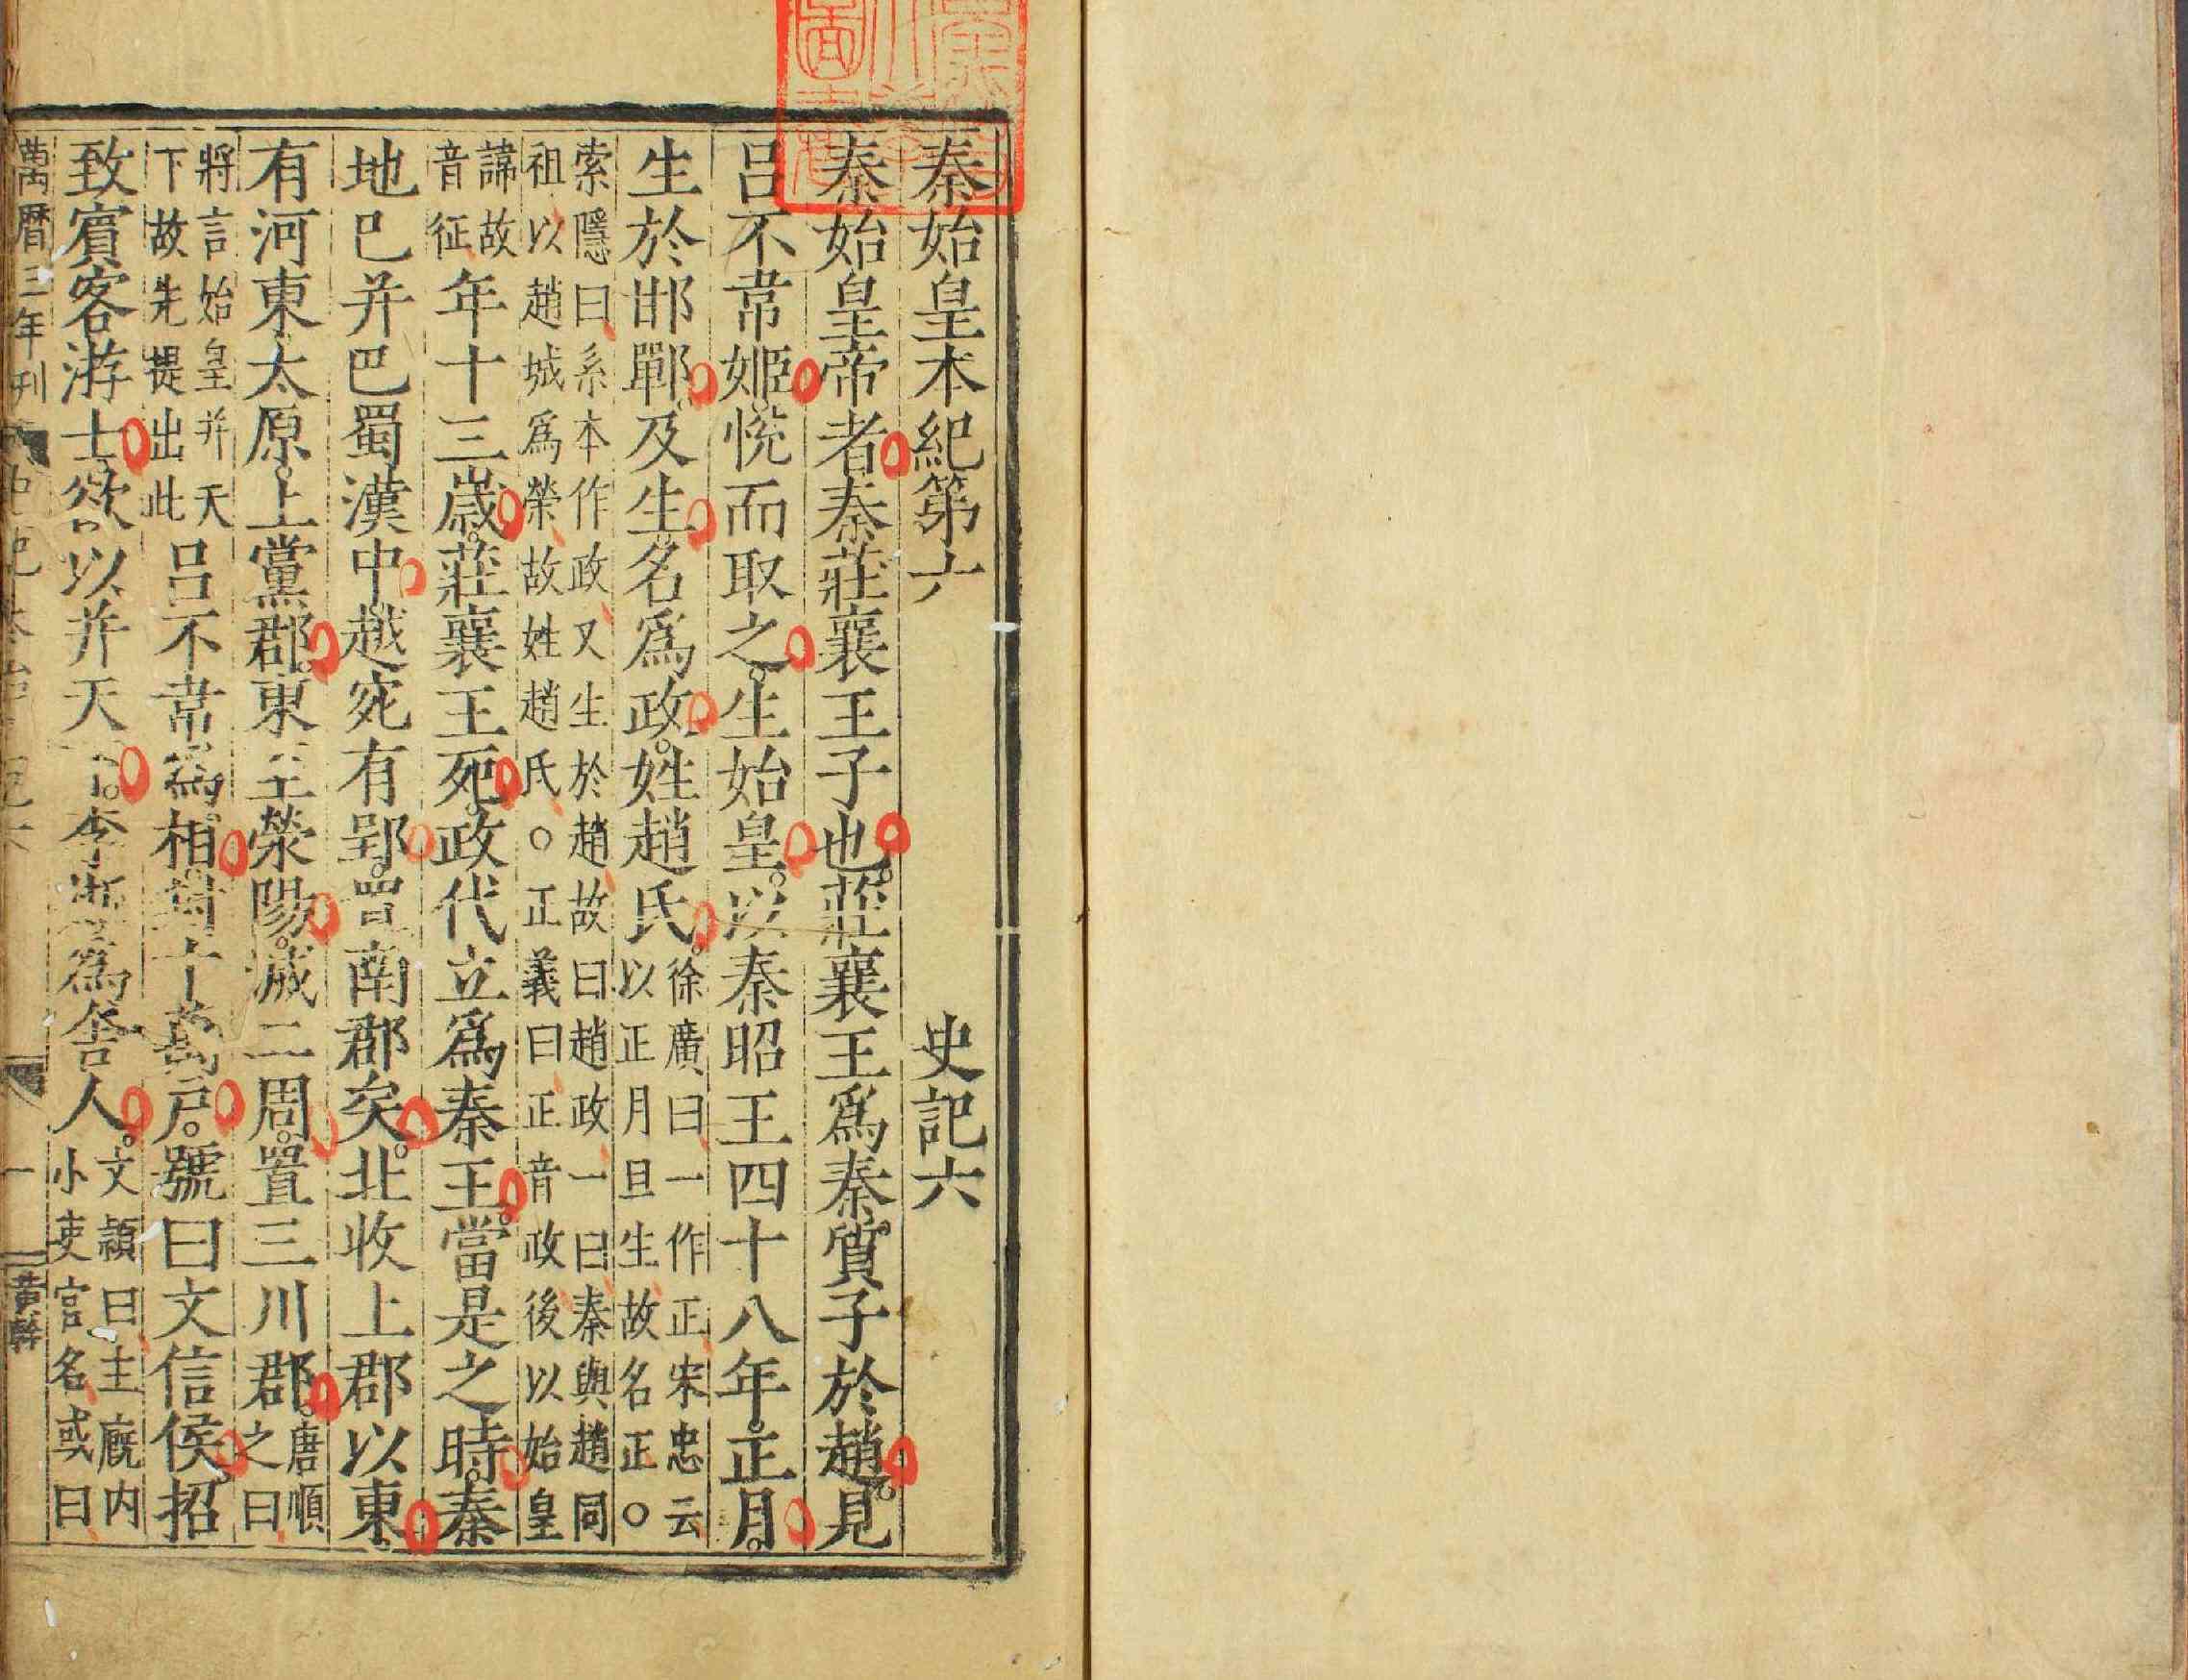 秦始皇本紀第六 史記六
秦始皇帝者秦莊襄王子也。莊襄王爲秦質子於趙。見
呂不韋姬。悅而取之。生始皇。以秦昭王四十八年。正月。
生於邯鄲。及生。名爲政。姓趙氏。徐廣曰一作正宋忠云以正月旦生故名正○
索隱曰系本作政又生於趙故曰趙政一曰秦與趙同祖以趙城爲榮故姓趙氏○正義曰正音政後以始皇
諱故音征年十三歲。莊襄王死。政代立爲秦王。當是之時。秦
地已并巴蜀漢中越宛有郢。置南郡矣。北收上郡以東。
有河東太原。上黨郡。東至滎陽。滅二周。置三川郡。唐順之曰
將言始皇并天下故先提出此呂不韋爲相。封十萬戶。號曰文信侯。招
致賓客游士。欲以并天下。李斯爲舍人。文穎曰主廄内小吏官名或曰
萬曆三年刊 一 黄幹